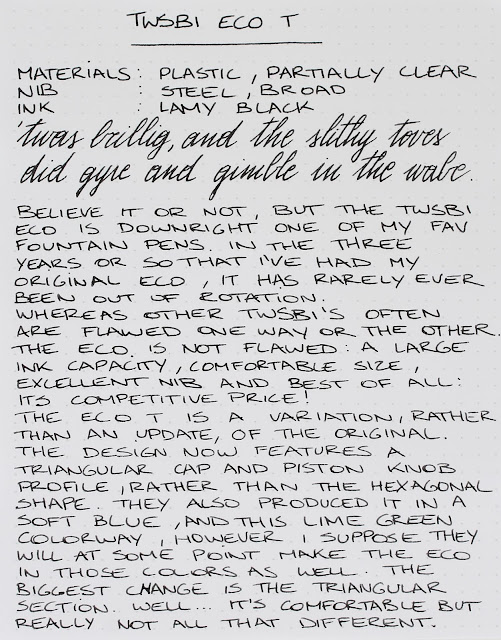 TWSBI ECO T
MATERIALS : PLASTIC, PARTIALLY CLEAR
NIB : STEEL, BROAD
INK : LAMY BLACK
'twas brillig, and the slithy toves
did gyre and gimble in the wabe.
BELIEVE IT OR NOT, BUT THE TWSBI
ECO IS DOWNRIGHT ONE OF MY FAV
FOUNTAIN PENS. IN THE THREE
YEARS OR SO THAT I'VE HAD MY
ORIGINAL ECO, IT HAS RARELY EVER
BEEN OUT OF ROTATION.
WHEREAS OTHER TWSBI'S OFTEN
ARE FLAWED ONE WAY OR THE OTHER.
THE ECO IS NOT FLAWED: A LARGE
INK CAPACITY, COMFORTABLE SIZE,
EXCELLENT NIB AND BEST OF ALL:
ITS COMPETITIVE PRICE!
THE ECO T IS A VARIATION, RATHER
THAN AN UPDATE, OF THE ORIGINAL.
THE DESIGN NOW FEATURES A
TRIANGULAR CAP AND PISTON KNOB
PROFILE, RATHER THAN THE HEXAGONAL
SHAPE. THEY ALSO PRODUCED IT IN A
SOFT BLUE, AND THIS LIME GREEN
COLORWAY, HOWEVER I SUPPOSE THEY
WILL AT SOME POINT MAKE THE ECO
IN THOSE COLORS AS WELL. THE
BIGGEST CHANGE IS THE TRIANGULAR
SECTION. WELL... IT'S COMFORTABLE BUT
REALLY NOT ALL THAT DIFFERENT.